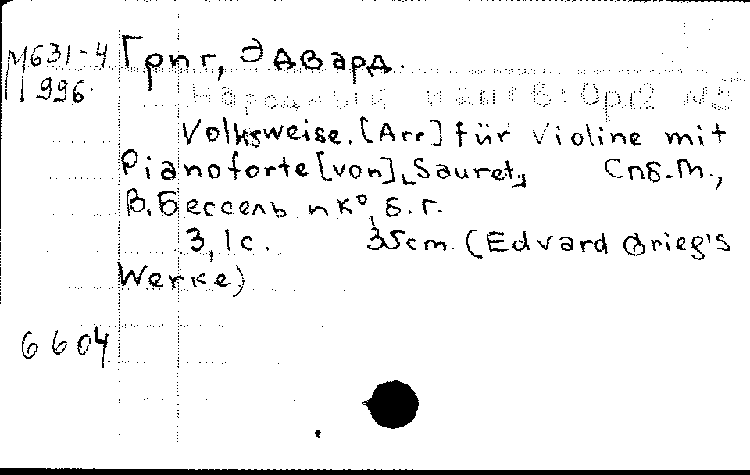 М631-4 Григ, Эдвард.
996.
Народный напев: Op.12 №5
Volksweise. [Arr] für Violine mit
Pianoforte [von] Sauret, Спб.-М.,
В. Бессель и К°, б. г.
3, 1 с. 35 cm. (Edvard Grieg's
Werke)
6604